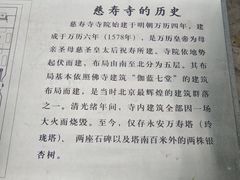 慈寿寺的历史
慈寿寺寺院始建于明朝万历四年，建
成于万历六年（1578年），是万历皇帝为母
亲圣母慈圣皇太后祝寿所建。寺院依地势
起伏而建，布局由南至北分为五层。其布
局基本依照佛寺建筑“伽蓝七堂”的建筑
布局而建，是当时北京最辉煌的建筑群落
之一。清光绪年间，寺内建筑全部因一场
大火而烧毁。至今，仅存永安万寿塔（玲
珑塔）、两座石碑以及塔南百米外的两株银
杏树。